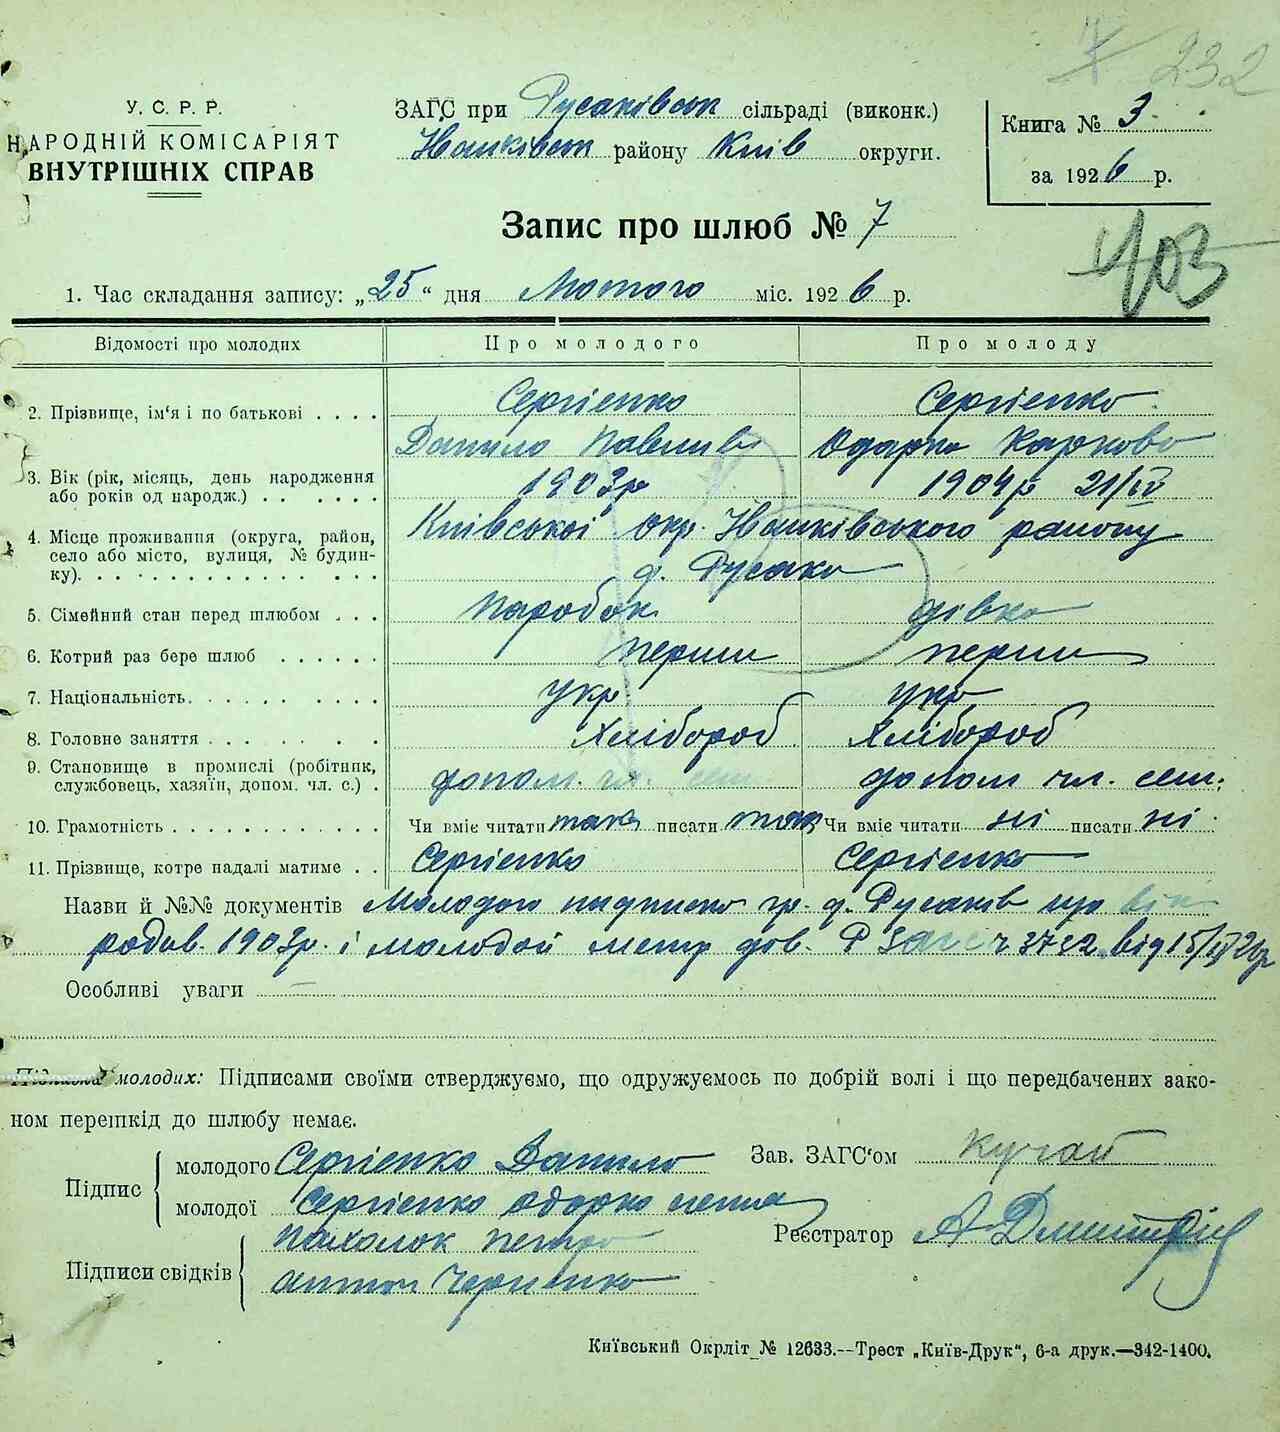 232
У. С. Р. Р.
НАРОДНІЙ КОМІСАРІЯТ
ВНУТРІШНІХ СПРАВ
ЗАГС при Русаківськ сільраді (виконк.)
Іванківськ району Київ округи.
Книга № 3
за 1926 р.
Запис про шлюб № 7
403
1. Час складання запису: „25“ дня Лютого міс. 1926 р.
Відомості про молодих Про молодого Про молоду
2. Прізвище, ім‘я і по батькові . . . . Сергієнко Сергієнко
Данило Павлив Одарка Карпова
3. Вік (рік, місяць, день народження або років од народж.) . . . . . . . 1903р 1904р 21/III
4. Місце проживання (округа, район, село або місто, вулиця, № будинку). . . . . . . . . . . . . . . . Київської окр. Іванківського району
д. Русаки
5. Сімейний стан перед шлюбом . . . Паробок дівка
6. Котрий раз бере шлюб . . . . . . перший перший
7. Національність. . . . . . . . . . укр. укр
8. Головне заняття . . . . . . . . Хлібороб Хлібороб
9. Становище в промислі (робітник, службовець, хазяїн, допом. чл. с.) . допом. чл. сем. допом чл. сем.
10. Грамотність . . . . . . . . . . . . Чи вміє читати так писати так Чи вміє читати ні писати ні
11. Прізвище, котре надалі матиме . . Сергієнко Сергієнко
Назви й №№ документів Молодого підписка гр. д. Русаків що він
родив. 1903р. і молодой метр дов. Р Загс ч 3722 від
Особливі уваги
Підписка молодих: Підписами своїми стверджуємо, що одружуємось по добрій волі і що передбачених зако-
ном перешкід до шлюбу немає.
Підпис молодого Сергієнко Данило
молодої Сергієнко Одарка непись
Підписи свідків Пахолок Петро
Антон Черненко
Зав. ЗАГС‘ом Кучай
Реєстратор А Дмитр
Київський Окрліт № 12633.—Трест „Київ-Друк“, 6-а друк.—342-1400.